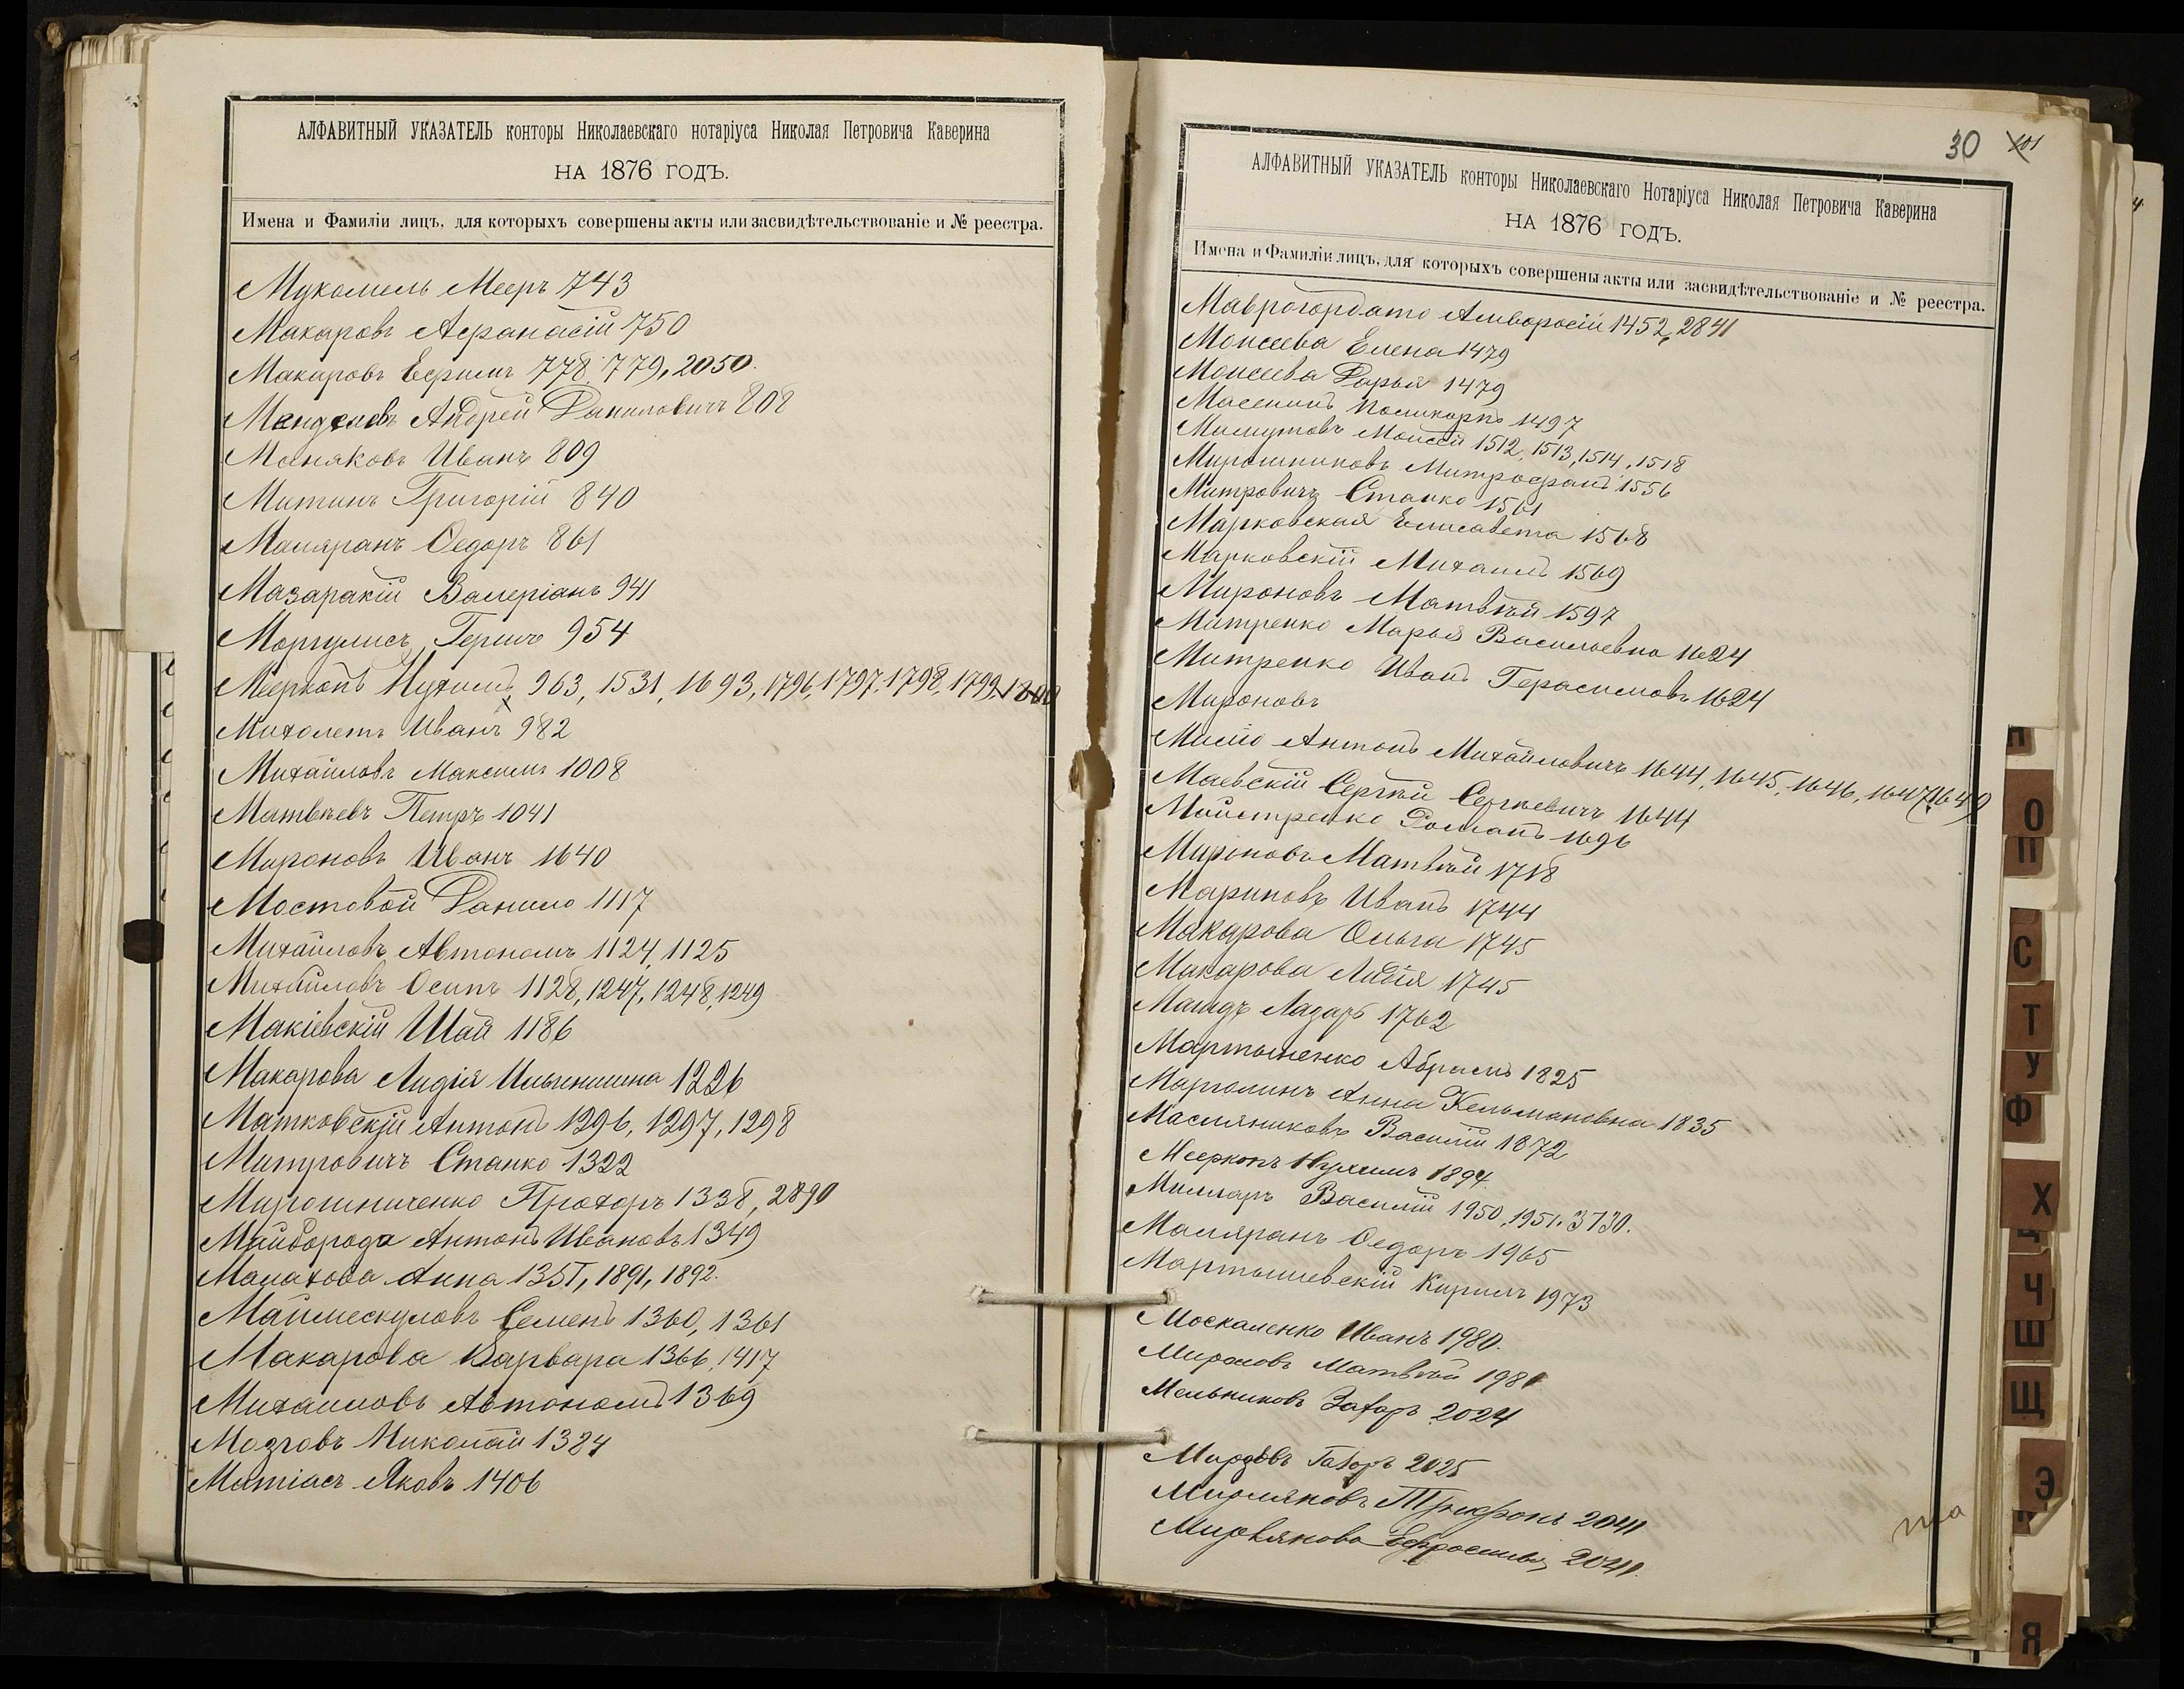 АЛФАВИТНЫЙ УКАЗАТЕЛЬ конторы Николаевскаго нотаріуса Николая Петровича Каверина
НА 1876 ГОДЪ.
Имена и Фамиліи лицъ, для которыхъ совершены акты или засвидѣтельствованіе и № реестра.
Мукомель Мееръ 743
Макаровъ Афанасій 750
Макаровъ Ефимъ 778, 779, 2050.
Андрей Даниловичъ 808
Меняковъ Иванъ 809
Митинъ Григорій 840
Маляранъ Ѳедоръ 861
Мазаракій Валеріанъ 941
Моргулисъ Гершъ 954
Мееркопъ Нухимъ 963, 1531, 1693, 1796, 1797, 1798, 1799, 1800
Михолетъ Иванъ 982
Михайловъ Максимъ 1008
Матвѣевъ Петръ 1041
Мироновъ Иванъ 1640
Мостовой Данило 1117
Михайловъ Автономъ 1124, 1125
Михайловъ Осипъ 1128, 1247, 1248, 1249
Макіевскій Шая 1186
Макарова Лидія Ильинишна 1226
Матковскій Антонъ 1296, 1297, 1298
Митровичъ Станко 1322
Мирошниченко Прохоръ 1338, 2890
Майборода Антонъ Ивановъ 1349
Малахова Анна 1351, 1891, 1892.
Маймескуловъ Семенъ 1360, 1361
Макарова Варвара 1366, 1417
Михайловъ Автономъ 1369
Мозговъ Николай 1384
Матіасъ Яковъ 1406
30 101
АЛФАВИТНЫЙ УКАЗАТЕЛЬ конторы Николаевскаго Нотаріуса Николая Петровича Каверина
НА 1876 ГОДЪ.
Имена и Фамиліи лицъ, для которыхъ совершены акты или засвидѣтельствованіе и № реестра.
Маврогордато Амворосій 1452, 2841
Моисеева Елена 1479
Моисеева Дарья 1479
Поликарпъ 1497
Милутовъ Моисей 1512, 1513, 1514, 1518
Мирошниковъ Митрофанъ 1556
Митровичъ Станко 1561
Марковская Елисавета 1568
Марковскій Михаилъ 1569
Мироновъ Матвѣй 1597
Митренко Марья Васильевна 1624
Митренко Иванъ Герасимовъ 1624
Мироновъ
Антонъ Михайловичъ 1644, 1645, 1646, 1647, 1649
Маевскій Сергѣй Сергѣевичъ 1644
Майстренко Романъ 1696
Мироновъ Матвѣй 1718
Мариновъ Иванъ 1744
Макарова Ольга 1745
Макарова Лидія 1745
Лазарь 1762
Мартыненко Абрамъ 1825
Марголинъ Анна Кельмановна 1835
Масляниковъ Василій 1872
Мееркопъ Нухимъ 1894
Миллеръ Василій 1950, 1951, 3730.
Маляранъ Ѳедоръ 1965
Мартышевскій Кирилъ 1973
Москаленко Иванъ 1980.
Мироновъ Матвѣй 1981
Мельниковъ Захаръ 2024
2025
Трифонъ 2041
2041.
О
П
С
Т
У
Ф
Х
Ч
Ш
Щ
Э
Я